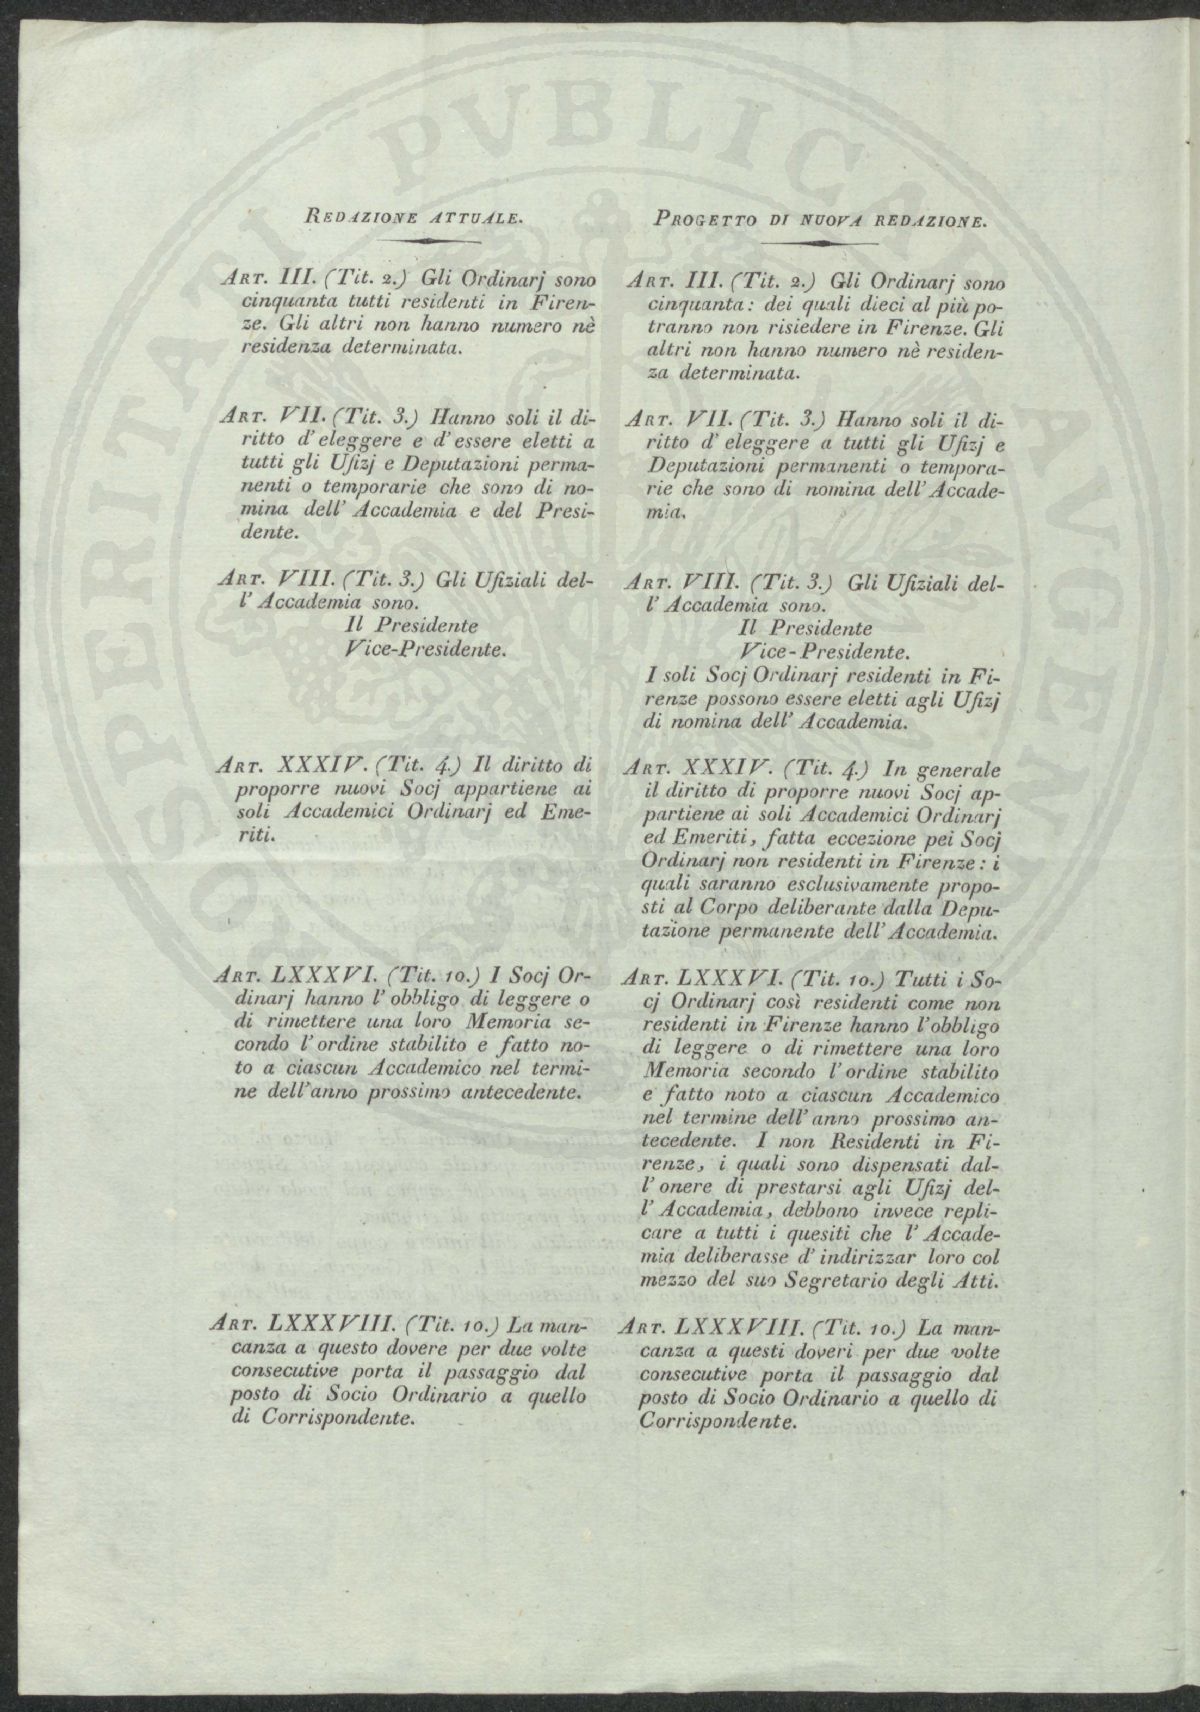 REDAZIONE ATTUALE.
ART. III. (Tit. 2.) Gli Ordinarj sono
cinquanta tutti residenti in Firen-
ze. Gli altri non hanno numero nè
residenza determinata.
ART. VII. (Tit. 3.) Hanno soli il di-
ritto d' eleggere e d' essere eletti a
tutti gli Ufizj e Deputazioni perma-
nenti o temporarie che sono di no-
mina dell' Accademia e del Presi-
dente.
ART. VIII. (Tit. 3.) Gli Ufiziali del-
l' Accademia sono.
Il Presidente
Vice-Presidente.
ART. XXXIV. (Tit. 4.) Il diritto di
proporre nuovi Socj appartiene ai
soli Accademici Ordinarj ed Eme-
riti.
ART. LXXXVI. (Tit. 10.) I Socj Or-
dinarj hanno l' obbligo di leggere o
di rimettere una loro Memoria se-
condo l' ordine stabilito e fatto no-
to a ciascun Accademico nel termi-
ne dell' anno prossimo antecedente.
ART. LXXXVIII. (Tit. 10.) La man-
canza a questo dovere per due volte
consecutive porta il passaggio dal
posto di Socio Ordinario a quello
di Corrispondente.
PROGETTO DI NUOVA REDAZIONE.
ART. III. (Tit. 2.) Gli Ordinarj sono
cinquanta: dei quali dieci al più po-
tranno non risiedere in Firenze. Gli
altri non hanno numero nè residen-
za determinata.
ART. VII. (Tit. 3.) Hanno soli il di-
ritto d' eleggere a tutti gli Ufizj e
Deputazioni permanenti o tempora-
rie che sono di nomina dell' Accade-
mia.
ART. VIII. (Tit. 3.) Gli Ufiziali del-
l' Accademia sono.
Il Presidente
Vice-Presidente.
I soli Socj Ordinarj residenti in Fi-
renze possono essere eletti agli Ufizj
di nomina dell' Accademia.
ART. XXXIV. (Tit. 4.) In generale
il diritto di proporre nuovi Socj ap-
partiene ai soli Accademici Ordinarj
ed Emeriti, fatta eccezione pei Socj
Ordinarj non residenti in Firenze: i
quali saranno esclusivamente propo-
sti al Corpo deliberante dalla Depu-
tazione permanente dell' Accademia.
ART. LXXXVI. (Tit. 10.) Tutti i So-
cj Ordinarj così residenti come non
residenti in Firenze hanno l' obbligo
di leggere o di rimettere una loro
Memoria secondo l' ordine stabilito
e fatto noto a ciascun Accademico
nel termine dell' anno prossimo an-
tecedente. I non Residenti in Fi-
renze, i quali sono dispensati dal-
l' onere di prestarsi agli Ufizj del-
l' Accademia, debbono invece repli-
care a tutti i quesiti che l' Accade-
mia deliberasse d' indirizzar loro col
mezzo del suo Segretario degli Atti.
ART. LXXXVIII. (Tit. 10.) La man-
canza a questi doveri per due volte
consecutive porta il passaggio dal
posto di Socio Ordinario a quello di
Corrispondente.
PROSPERITATI PVBLICAE AVGENDAE